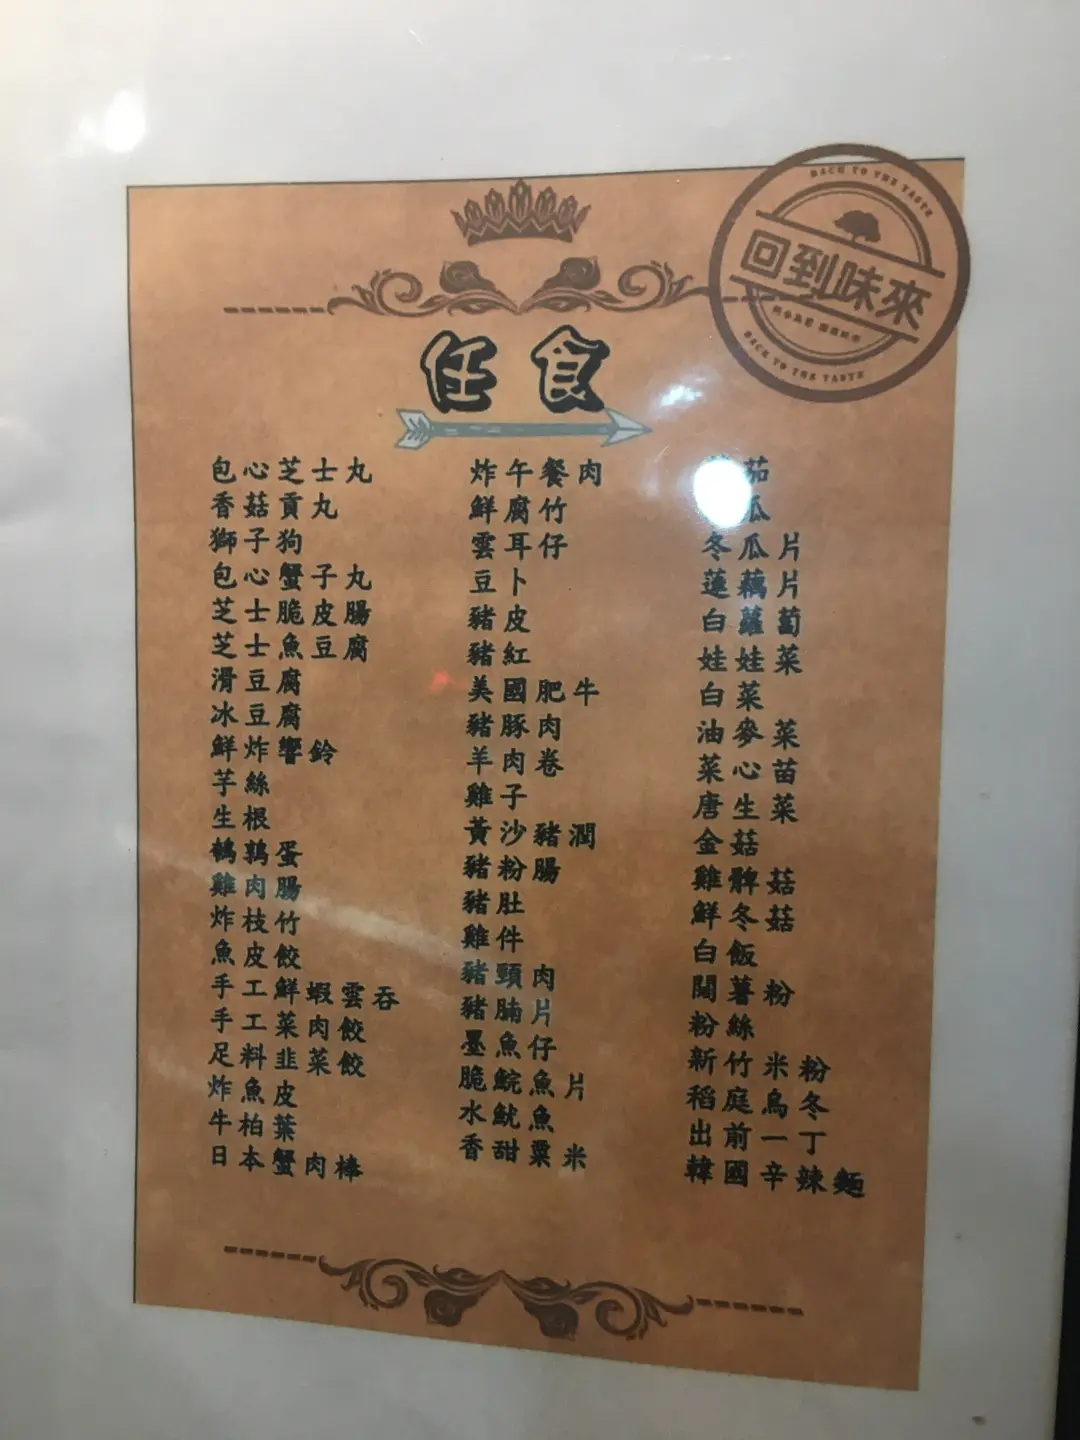 BACK TO THE TASTE
回到味來
BACK TO THE TASTE
任食
包心芝士丸
香菇貢丸
獅子狗
包心蟹子丸
芝士脆皮腸
芝士魚豆腐
滑豆腐
冰豆腐
鮮炸響鈴
芋絲
生根
鵪鶉蛋
雞肉腸
炸枝竹
魚皮餃
手工鮮蝦雲吞
手工菜肉餃
足料韭菜餃
炸魚皮
牛柏葉
日本蟹肉棒
炸午餐肉
鮮腐竹
雲耳仔
豆卜
豬皮
豬紅
美國肥牛
豬豚肉
羊肉卷
雞子
黃沙豬潤
豬粉腸
豬肚
雞件
豬頸肉
豬腩片
墨魚仔
脆鯇魚片
水魷魚
香甜粟米
茄
瓜
冬瓜片
蓮藕片
白蘿蔔
娃娃菜
白菜
油麥菜
菜心苗
唐生菜
金菇
雞髀菇
鮮冬菇
白飯
闊薯粉
粉絲
新竹米粉
稻庭烏冬
出前一丁
韓國辛辣麵